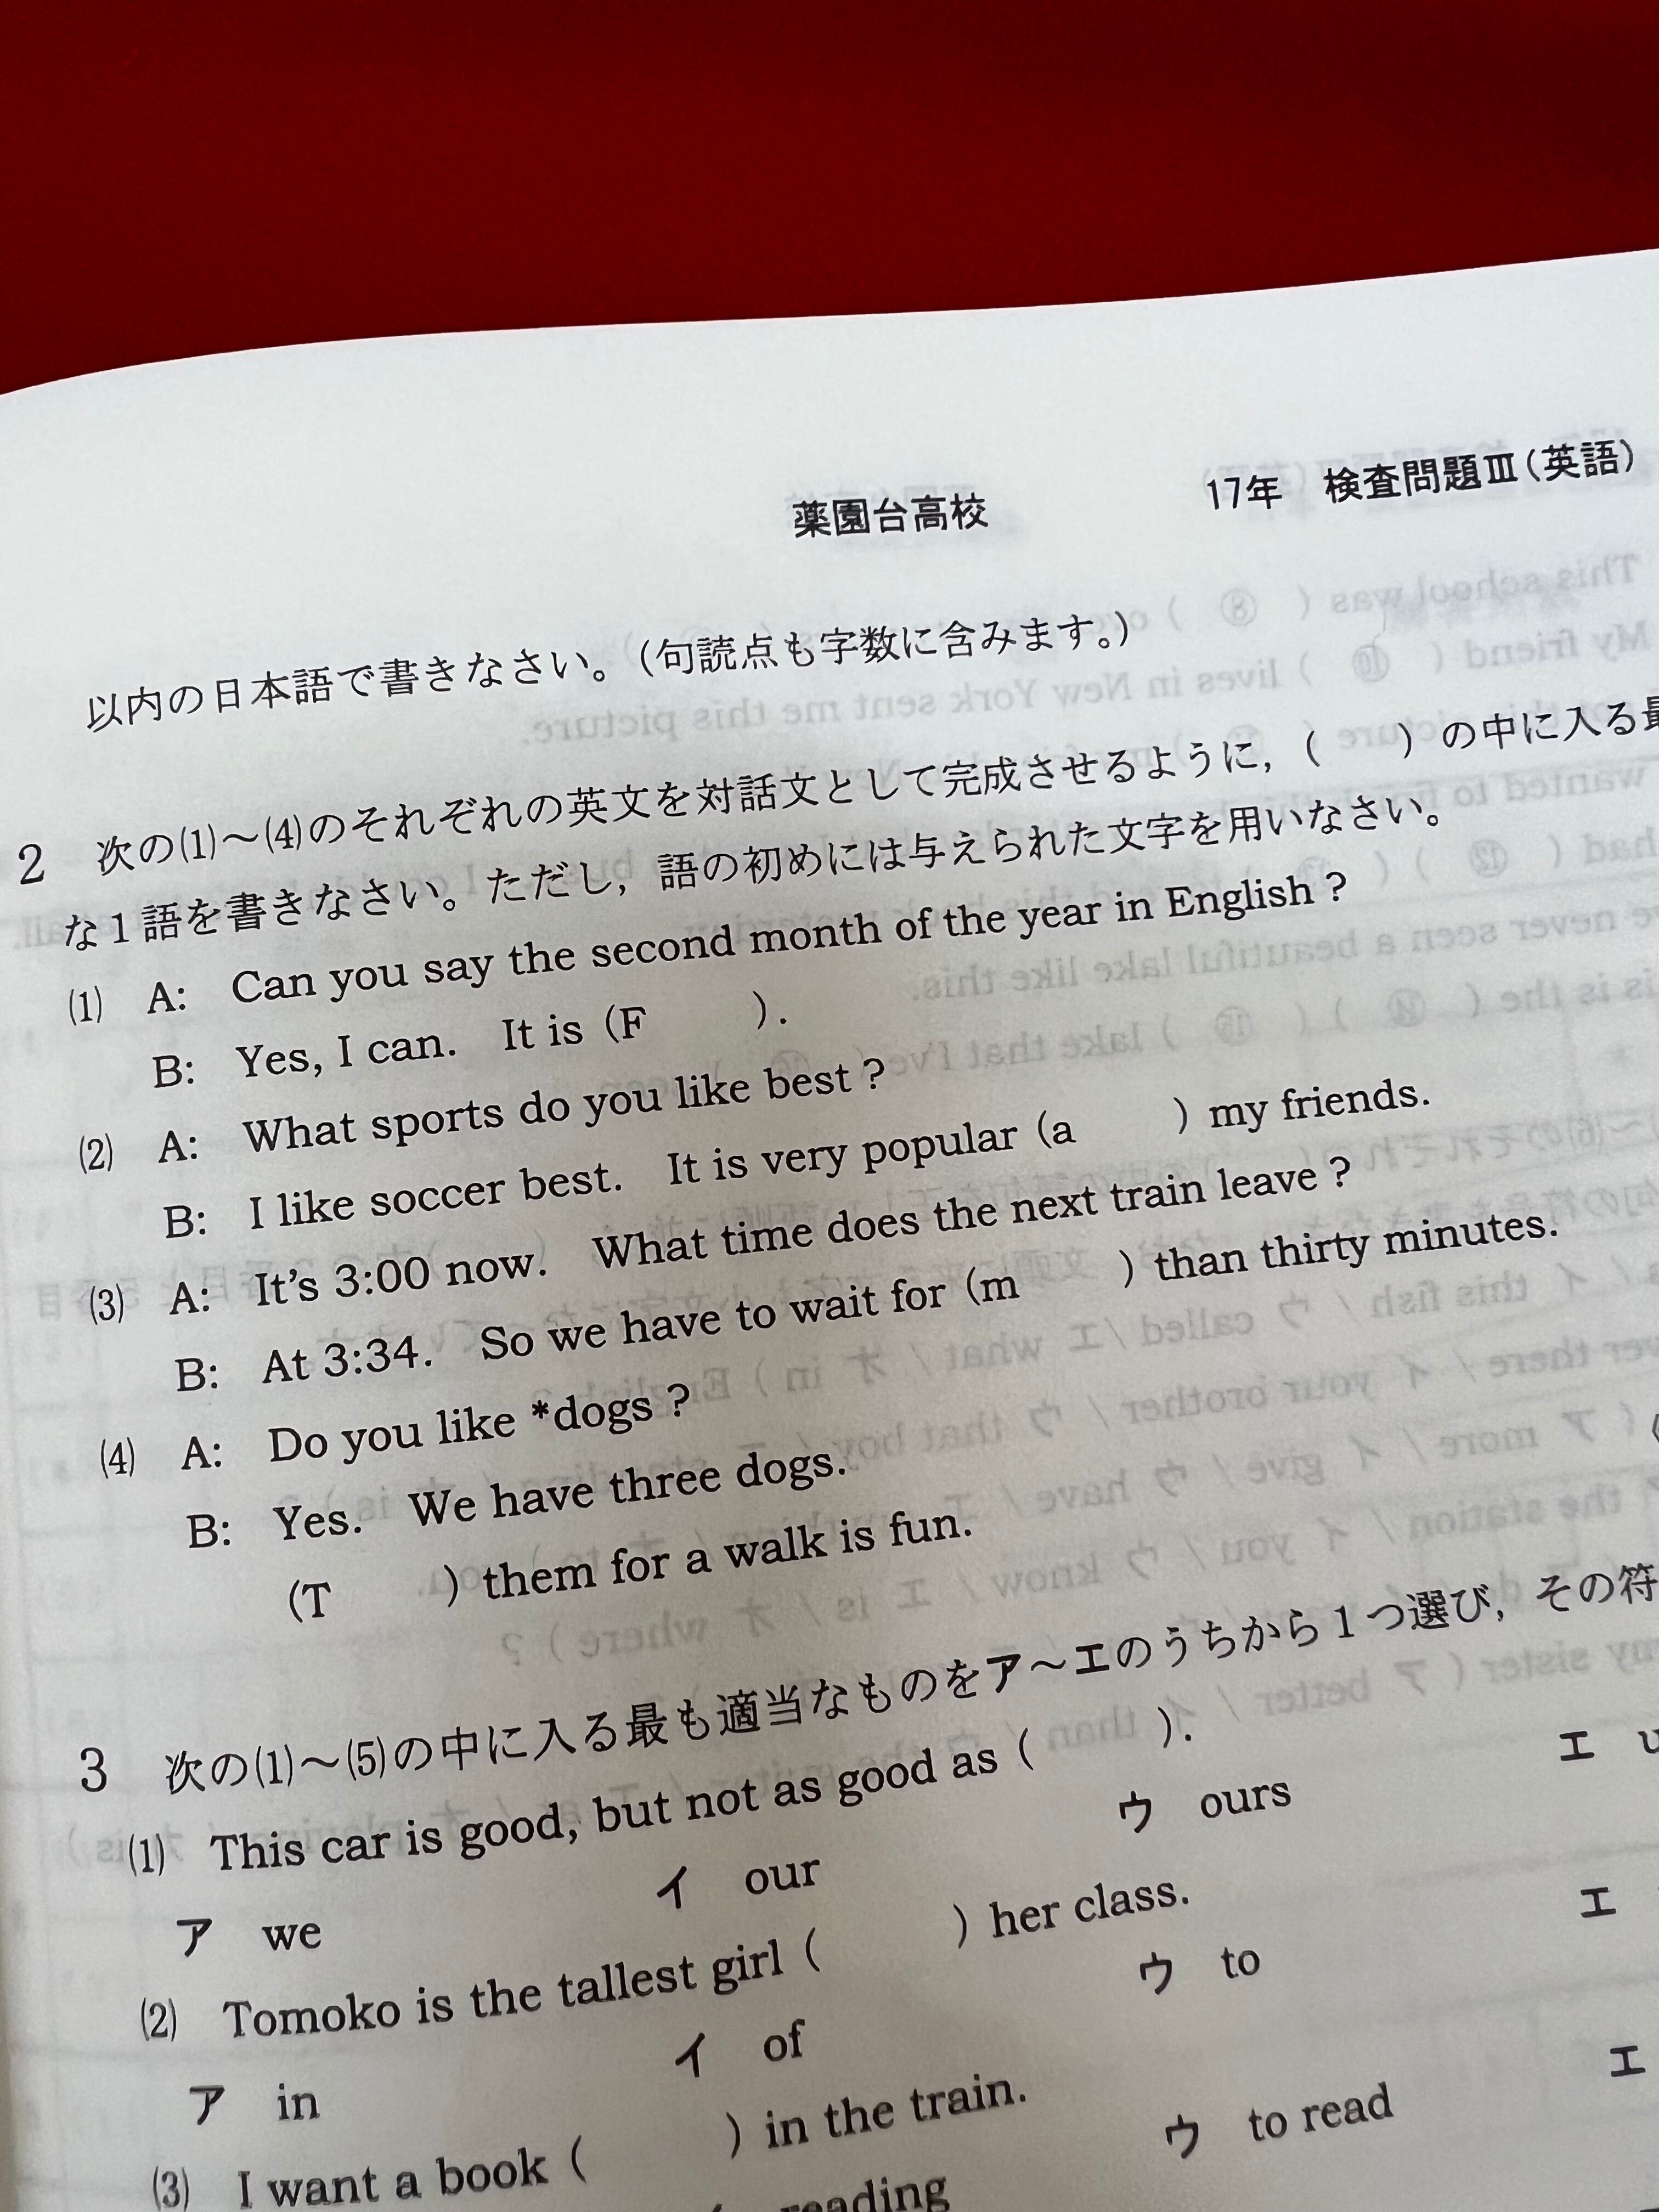 薬園台高校 17年 検査問題Ⅲ(英語)
以内の日本語で書きなさい。(句読点も字数に含みます。)
2 次の(1)~(4)のそれぞれの英文を対話文として完成させるように,( )の中に入る最
な1語を書きなさい。ただし,語の初めには与えられた文字を用いなさい。
(1) A: Can you say the second month of the year in English ?
B: Yes, I can. It is (F ).
(2) A: What sports do you like best ?
B: I like soccer best. It is very popular (a ) my friends.
(3) A: It's 3:00 now. What time does the next train leave ?
B: At 3:34. So we have to wait for (m ) than thirty minutes.
(4) A: Do you like *dogs ?
B: Yes. We have three dogs.
(T ) them for a walk is fun.
3 次の(1)~(5)の中に入る最も適当なものをア~エのうちから1つ選び,その符
(1) This car is good, but not as good as ( ).
ア we イ our ウ ours エ u
(2) Tomoko is the tallest girl ( ) her class.
ア in イ of ウ to エ
(3) I want a book ( ) in the train.
reading ウ to read エ